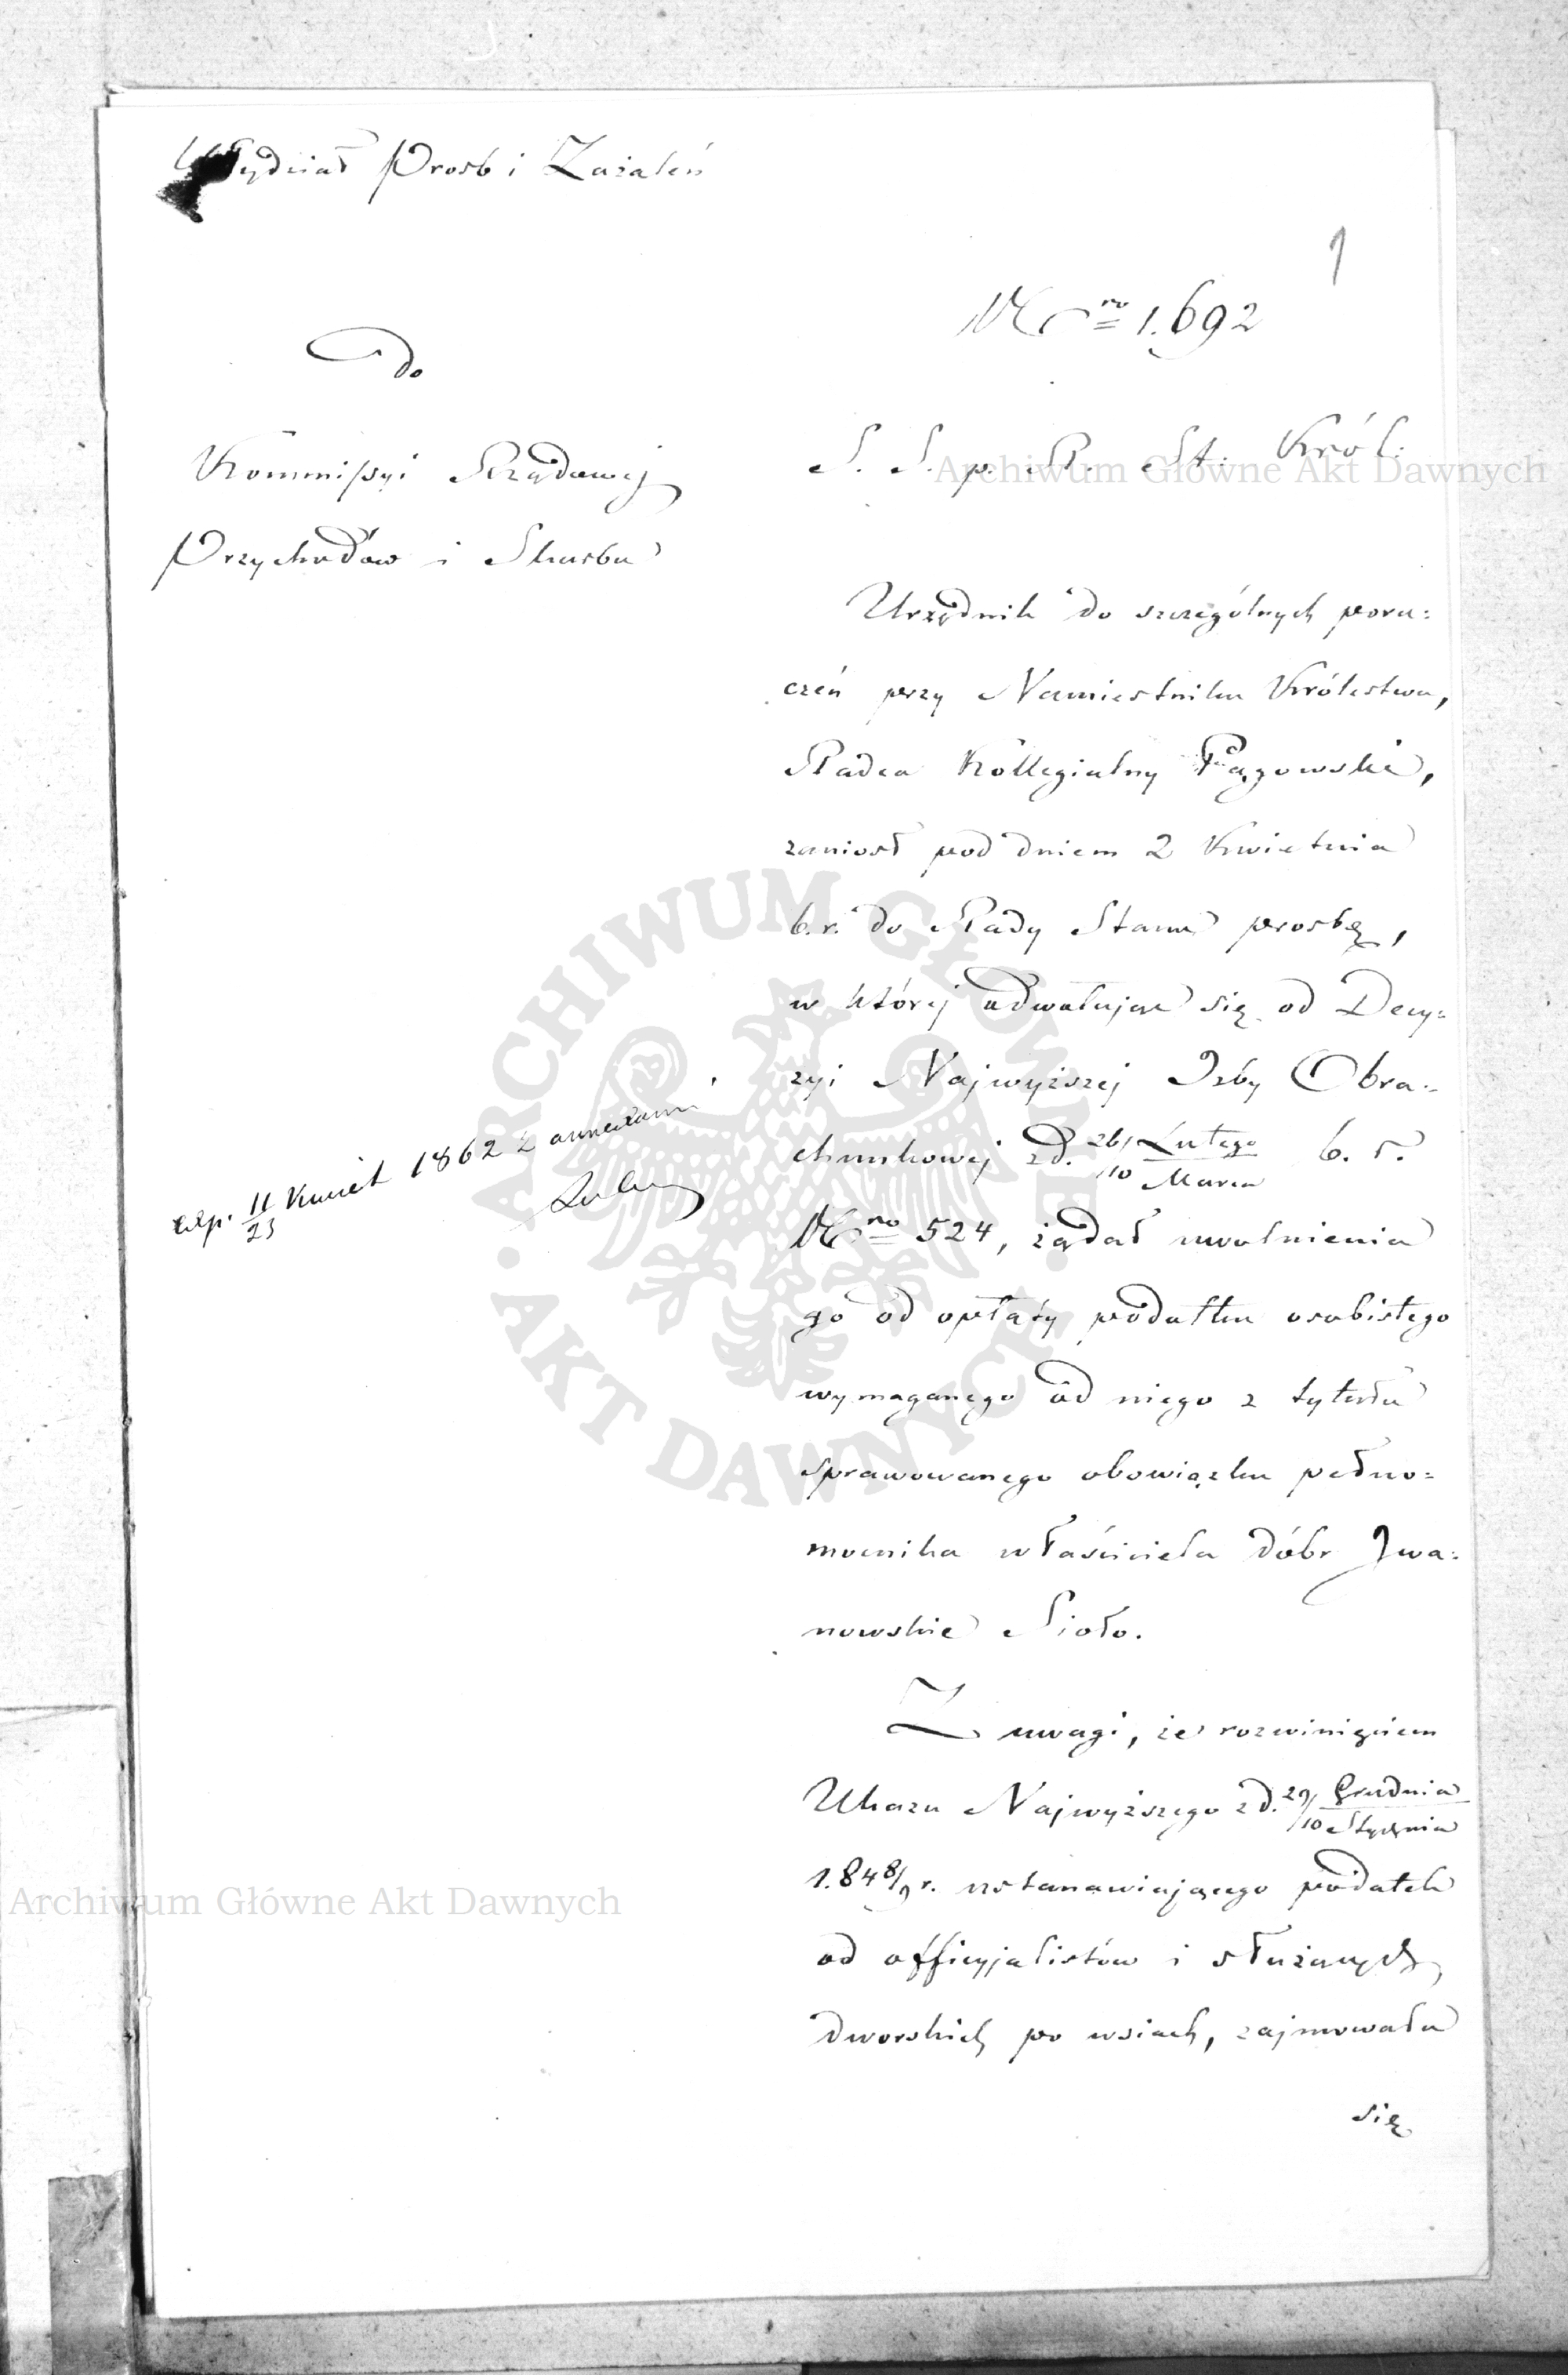 Wydział Prosb i Zażaleń
1
Nro 1.692
Do
Kommissyi Rządowej
Przychodów i Skarbu
S. S. p. R. St. Król.
Urzędnik do szczególnych poru=
czeń przy Namiestniku Królestwa,
Radca Kollegialny Pągowski,
zaniosł pod dniem 2 Kwietnia
b. r. do Rady Stanu prosbę,
w której odwołując się od Decy=
zyi Najwyższej Izby Obra=
chunkowej z d. 26/10 Lutego/Marca b. r.
Nro 524, żądał uwolnienia
go od opłaty podatku osobistego
wymaganego od niego z tytułu
sprawowanego obowiązku pełno=
mocnika właściciela dóbr Iwa=
nowskie Sioło.
exp. 11/23 Kwiet 1862 z annexami
Z uwagi, że rozwinięciem
Ukazu Najwyższego z d. 29/10 Grudnia/Stycznia
1.848/9 r. ustanawiającego podatek
od officyjalistów i służących
dworskich po wsiach, zajmowała
się
Archiwum Główne Akt Dawnych
ARCHIWUM GŁÓWNE AKT DAWNYCH
Archiwum Główne Akt Dawnych